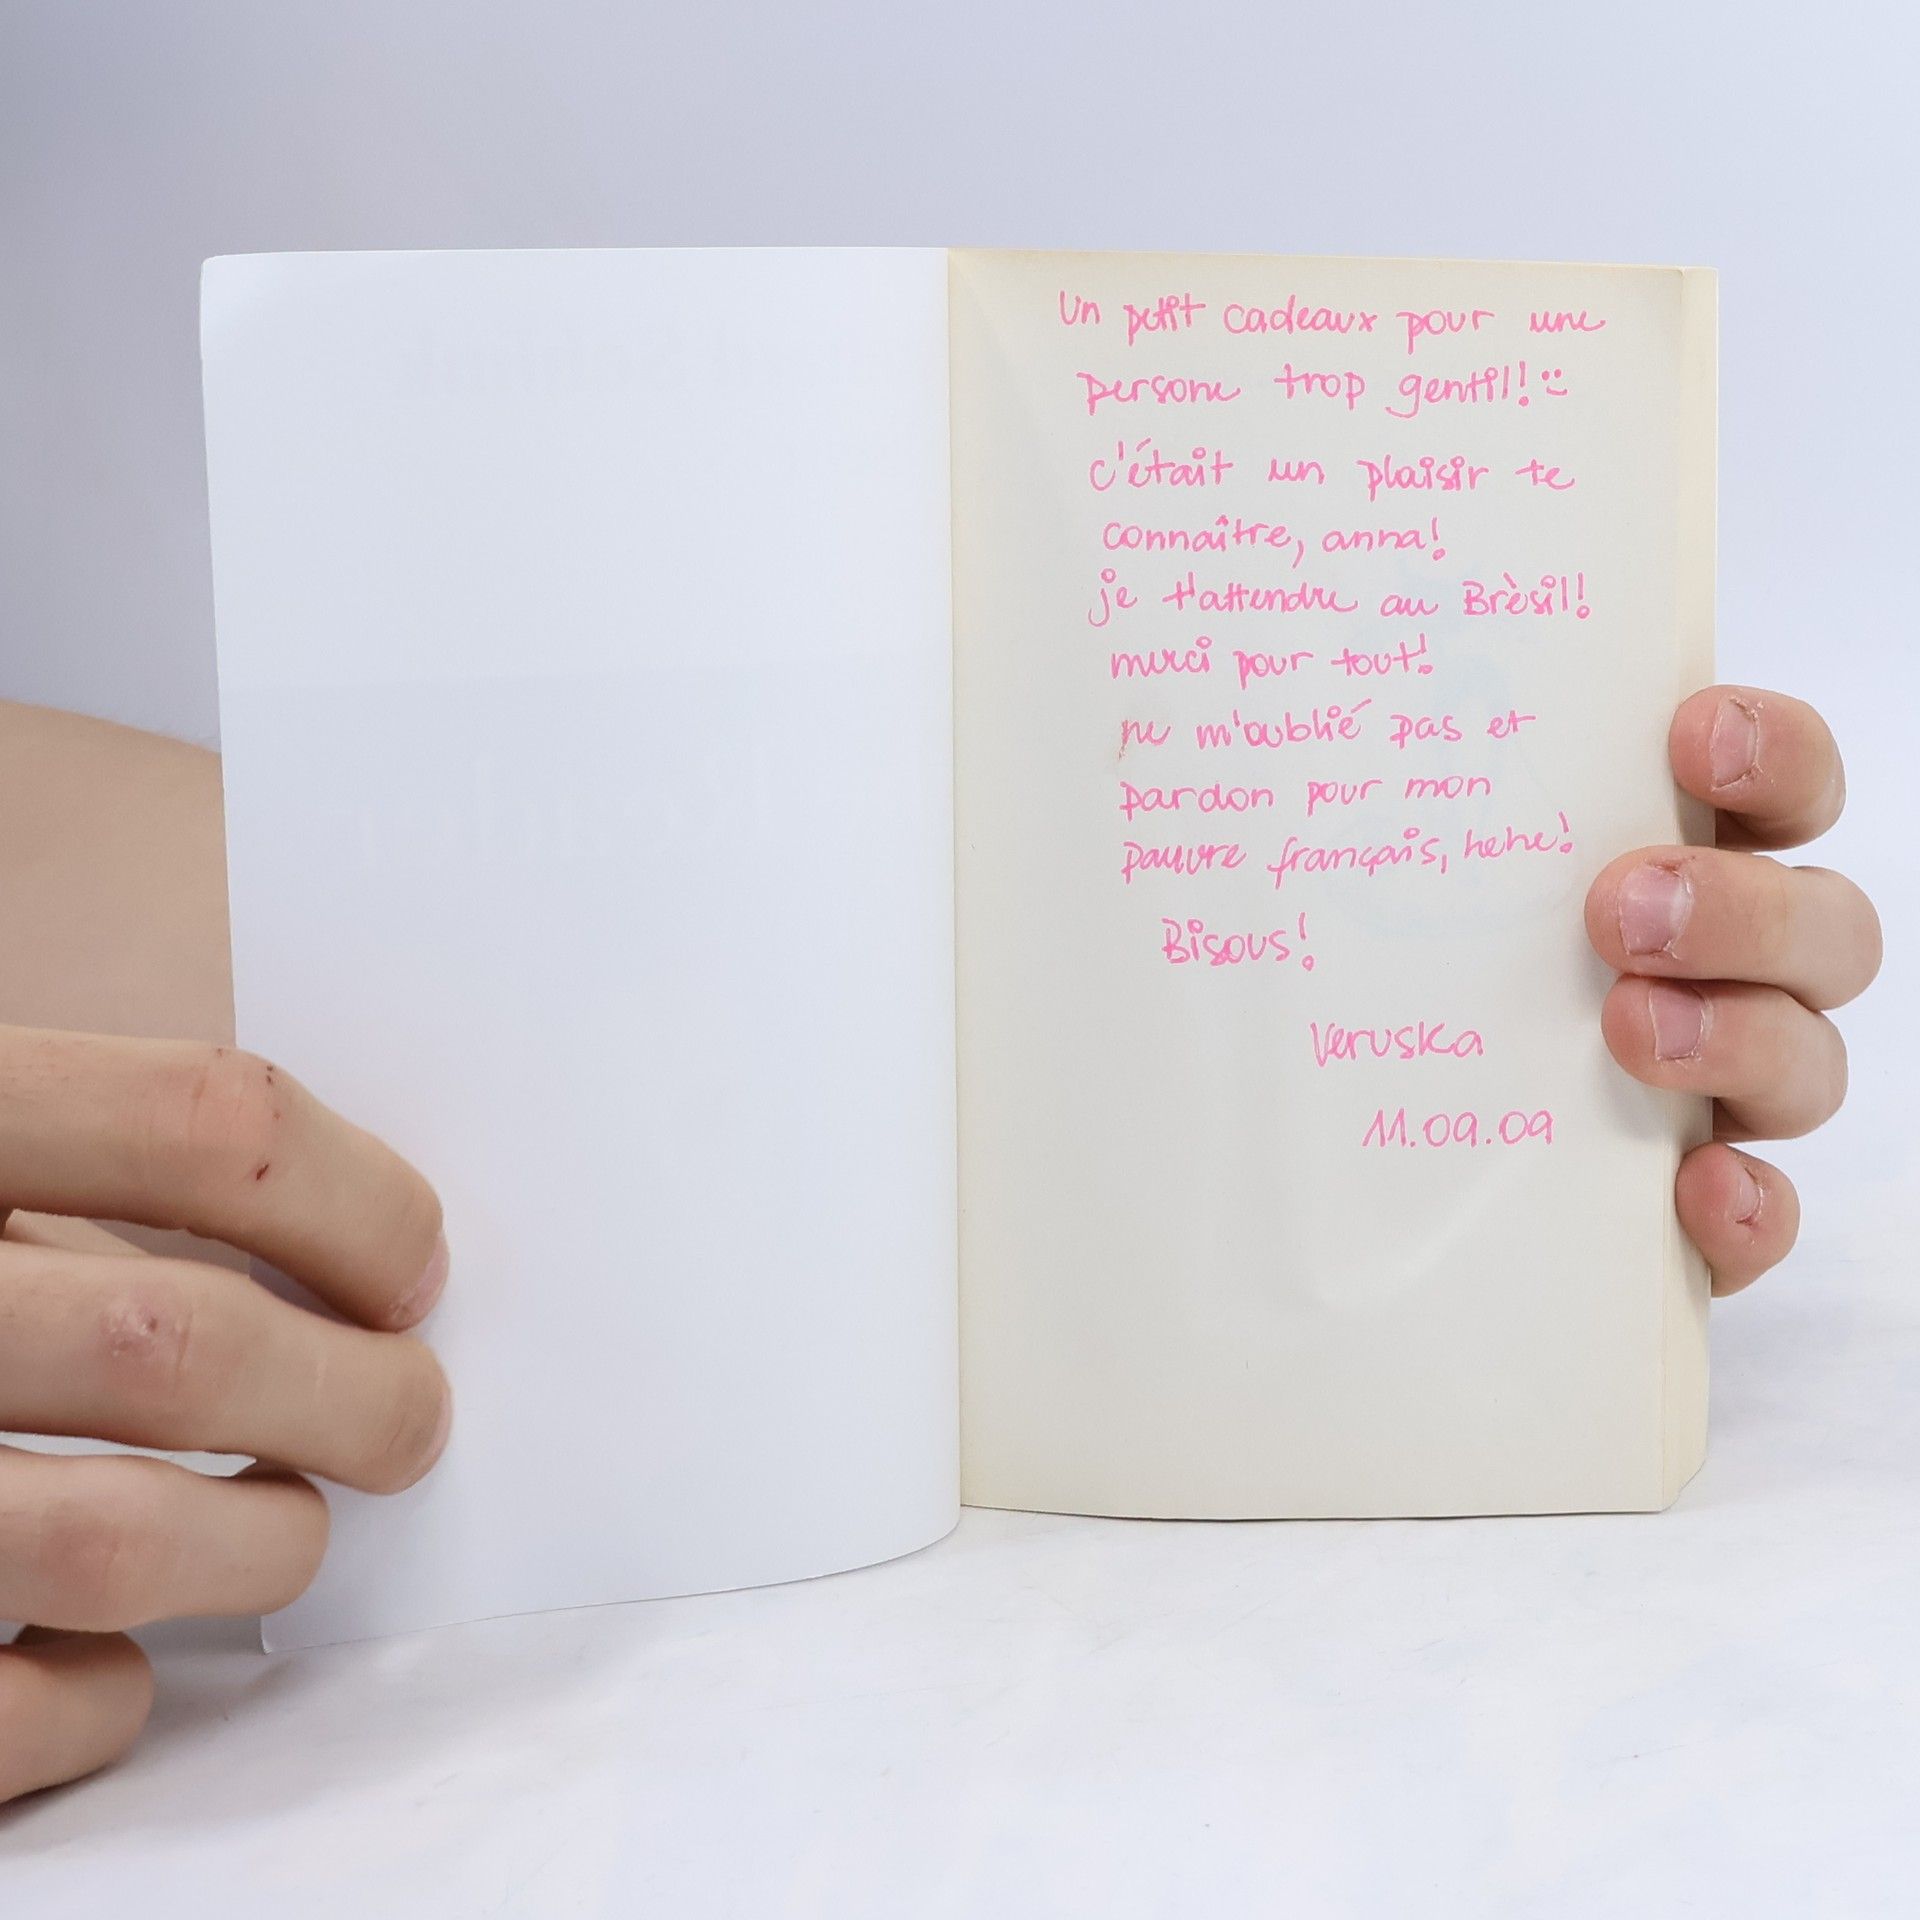 Un petit cadeaux pour une
persone trop gentil! :)
c'était un plaisir te
connaître, anna!
je t'attendre au Brèsil!
merci pour tout!
ne m'oublié pas et
pardon pour mon
pauvre français, hehe!
Bisous!
Veruska
11.09.09